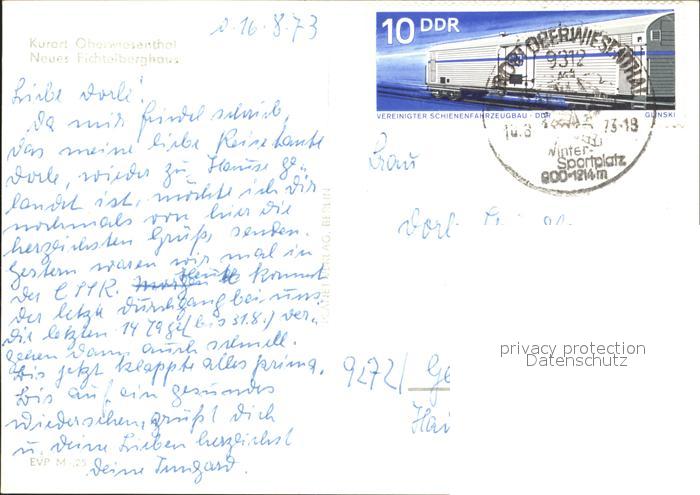 d. 16.8.73
Kurort Oberwiesenthal
Neues Fichtelberghaus
Liebe Dorle!
Da mir Friedel schrieb,
das meine liebe Reisetante
Dorle, wieder zu Hause ge„
landet ist, möchte ich Dir
nochmals von hier die
herzlichsten Grüße senden.
Gestern waren wir mal in
der ČSSR. heute kommt
der letzte Durchgang bei uns,
die letzten 14 Tage (bis 31.8.) ver„
gehen dann auch schnell.
Bis jetzt klappte alles prima.
Bis auf ein gesundes
Wiedersehen, grüßt Dich
u. Deine Lieben herzlichst
Deine Irmgard.
EVP M -,25
VERLAG, BERLIN
10 DDR
VEREINIGTER SCHIENENFAHRZEUGBAU · DDR GLINSKI
KURORT OBERWIESENTHAL
9312
16.8 73-18
Winter-
Sportplatz
800-1214m
Frau
9272/ Ge
Hai
privacy protection
Datenschutz